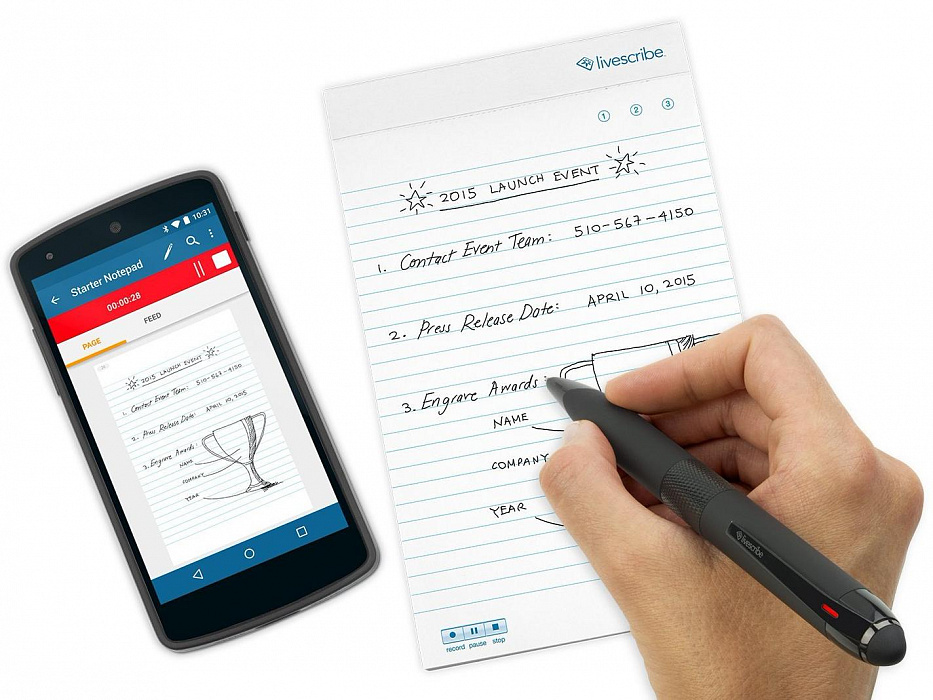 livescribe
1 2 3
2015 LAUNCH EVENT
1. Contact Event Team: 510-567-4150
2. Press Release Date: APRIL 10, 2015
3. Engrave Awards:
NAME
COMPANY
YEAR
record pause stop
livescribe
10:31
Starter Notepad
00:00:28
PAGE FEED
2015 LAUNCH EVENT
1. Contact Event Team: 510-567-4150
2. Press Release Date: APRIL 10, 2015
3. Engrave Awards:
NAME
COMPANY
YEAR